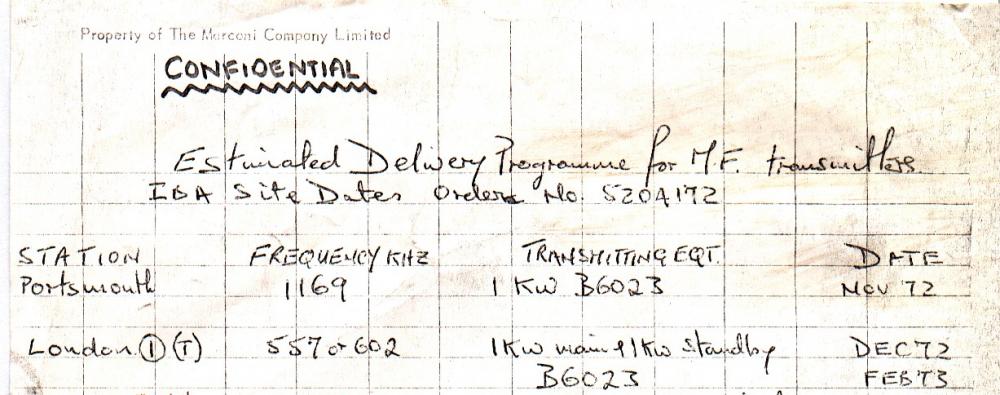 Property of The Marconi Company Limited
CONFIDENTIAL
Estimated Delivery Programme for M.F. transmitters
IBA Site Dates Orders No. 5204172
STATION FREQUENCY KHZ TRANSMITTING EQT. DATE
Portsmouth 1169 1 KW B6023 NOV 72
London ① (T) 557 or 602 1KW main & 1KW standby DEC 72
B6023 FEB 73